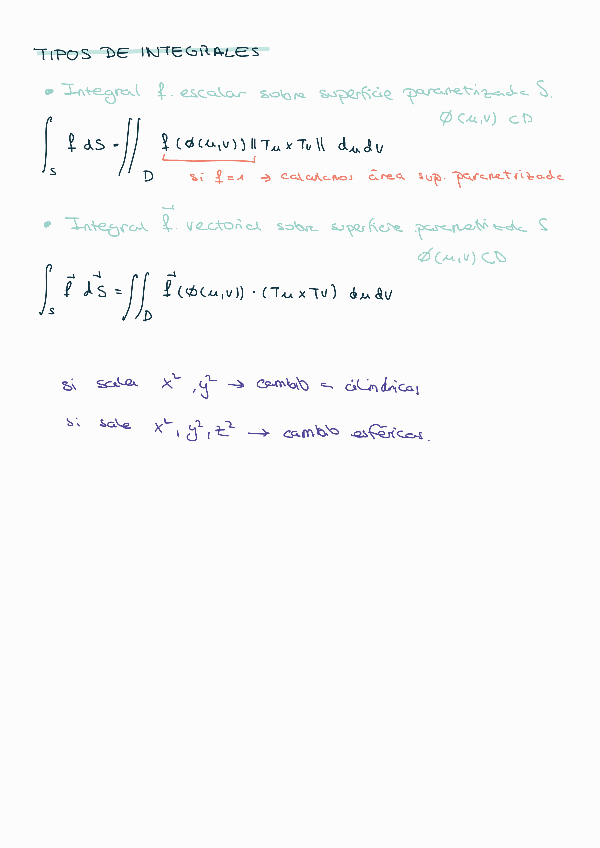 TIPOS DE INTEGRALES
• Integral f. escalar sobre superficie parametrizada S.
Φ(u,v) ⊂ D
∫_S f dS = ∬_D f(Φ(u,v)) ||Tu x Tv|| du dv
si f=1 → calculamos área sup. parametrizada
• Integral f⃗. vectorial sobre superficie parametrizada S
Φ(u,v) ⊂ D
∫_S f⃗ dS⃗ = ∬_D f⃗(Φ(u,v)) · (Tu x Tv) du dv
si salen x², y² → cambio a cilíndricas
si sale x², y², z² → cambio esféricas.